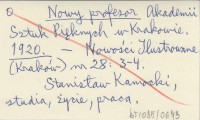 o Nowy profesor Akademii
Sztuk Pięknych w Krakowie.
1920. — Nowości Ilustrowane
(Kraków) nr 28: 3-4.
Stanisław Kamocki,
studia, życie, praca.